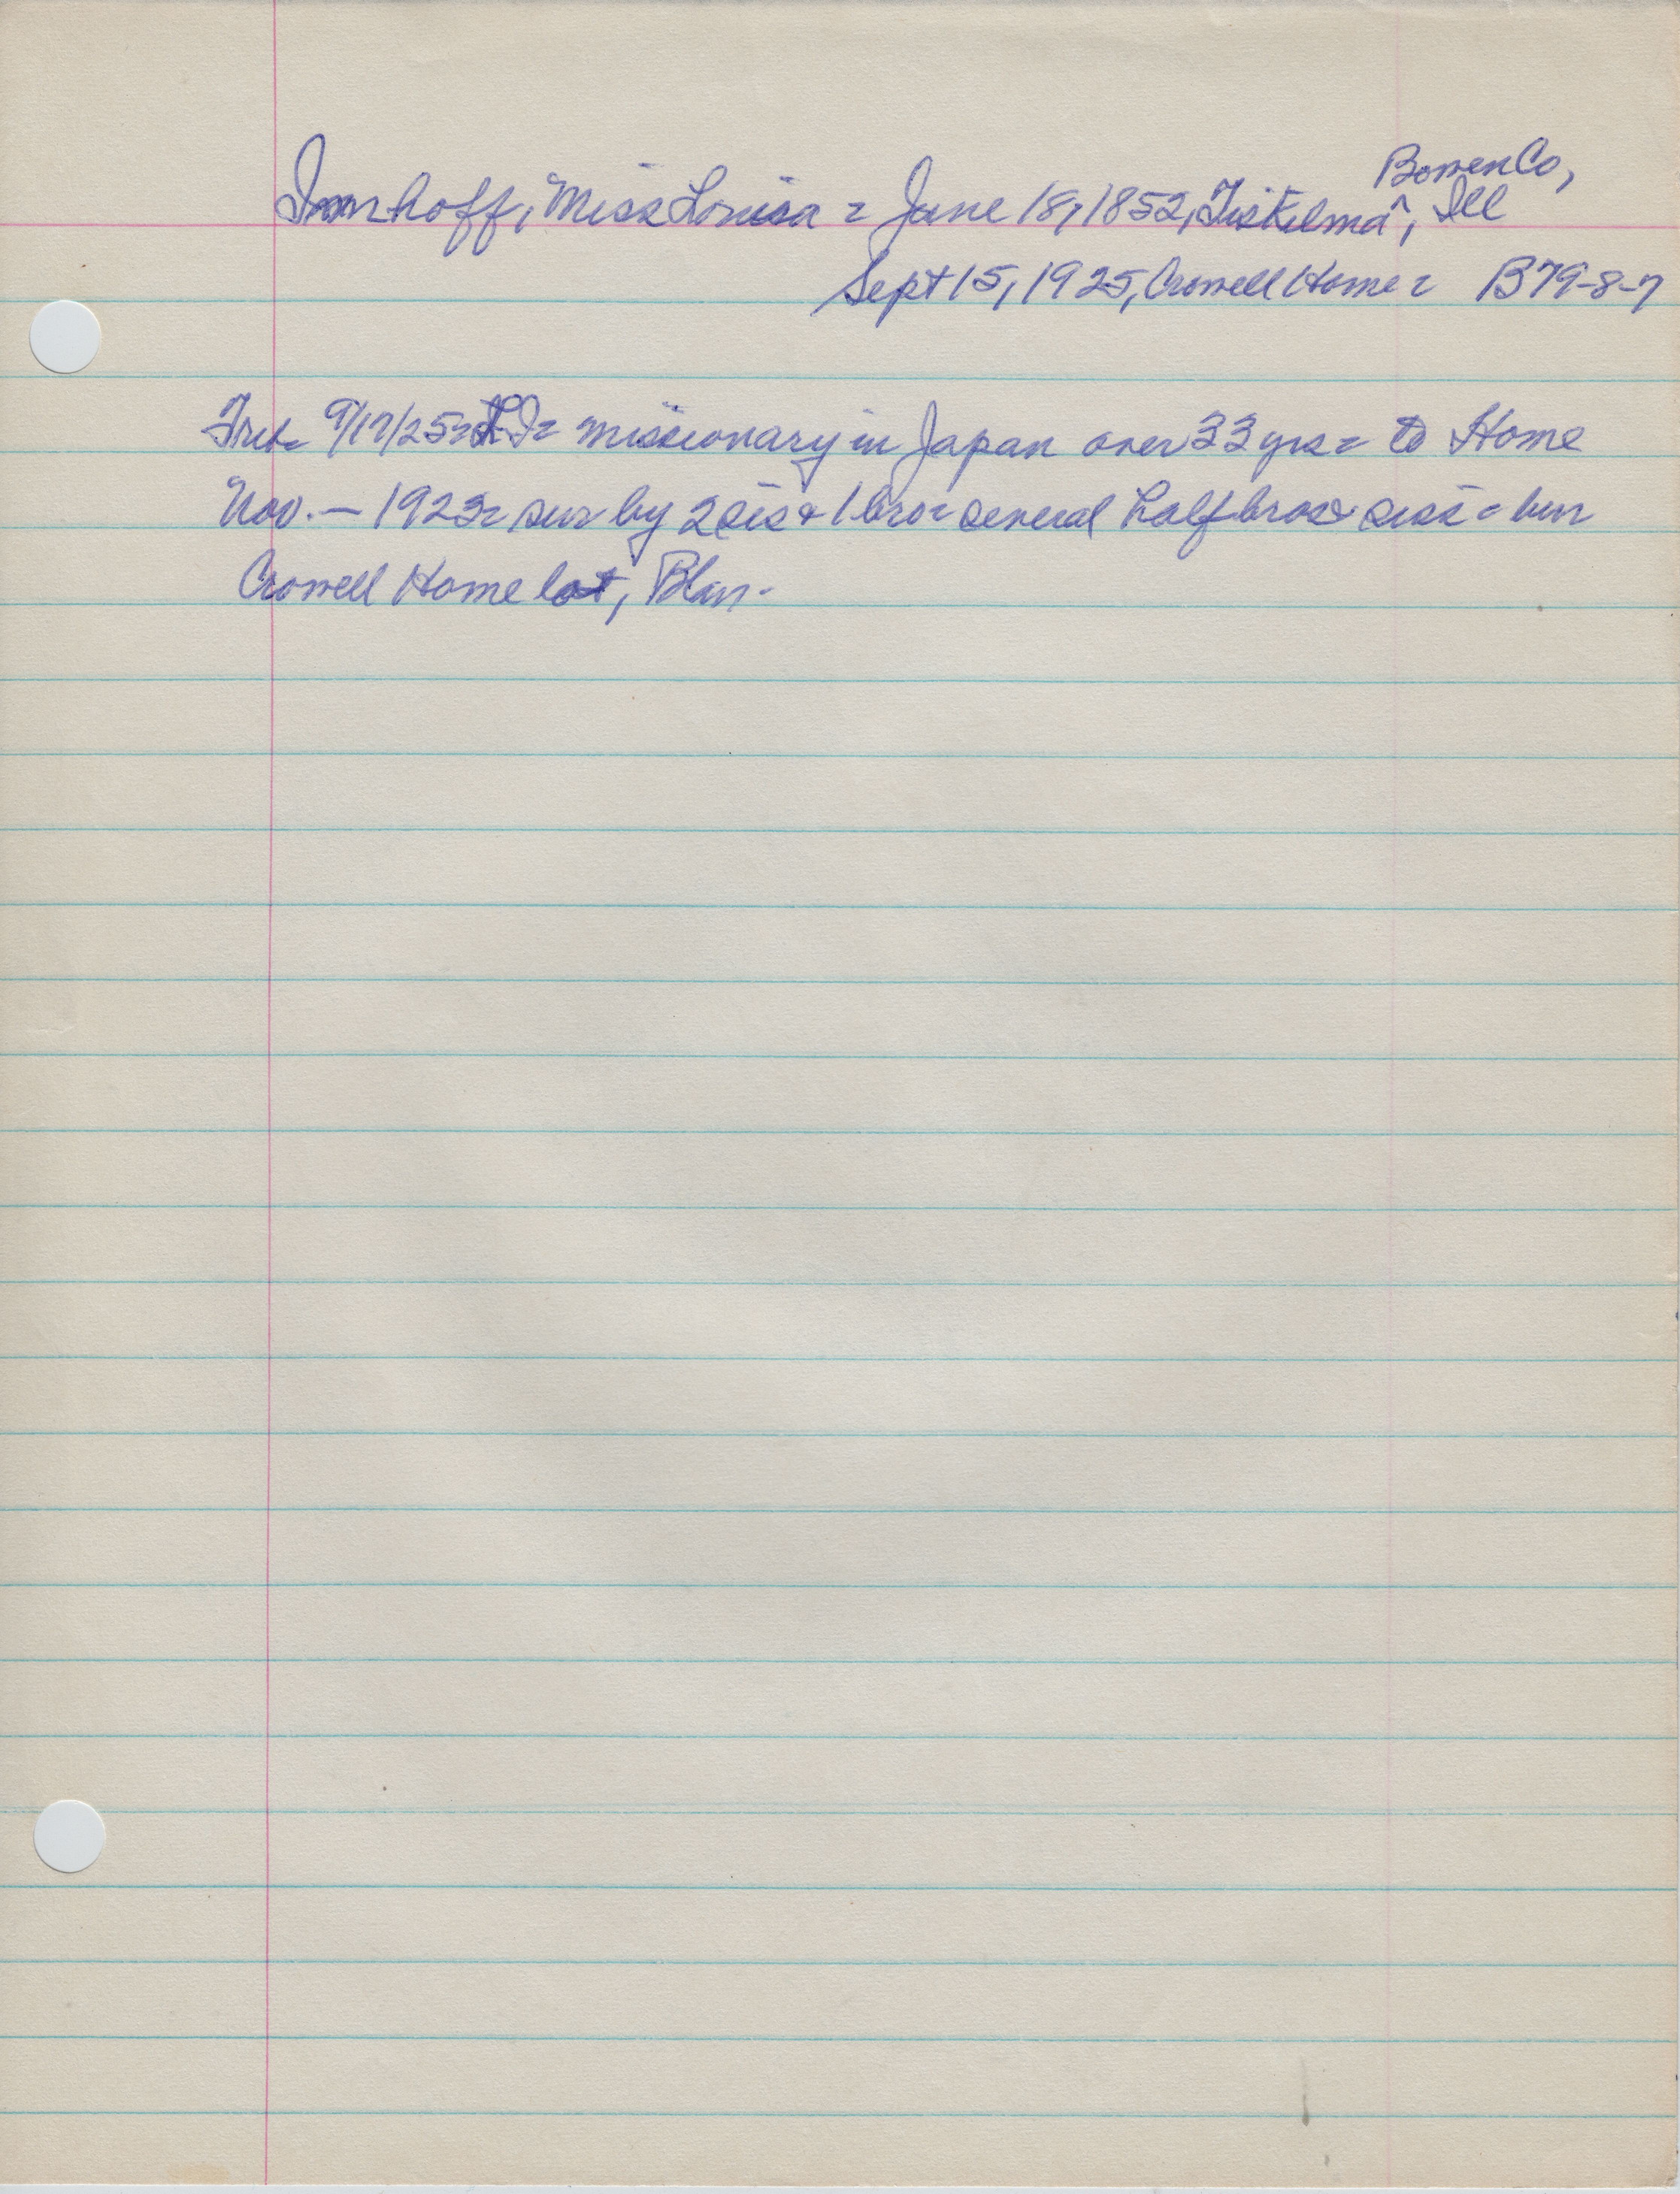 Bowen Co,
Imhoff, Miss Louisa = June 18, 1852, Tiskilma^, Ill
Sept 15, 1925, Crowell Home = B79-8-7
Trib 9/17/25 = LI = missionary in Japan over 33 yrs = to Home
Nov. — 1923 = sur by 2 sis & 1 bro = several half bros & siss = bur
Crowell Home lot, Blair.